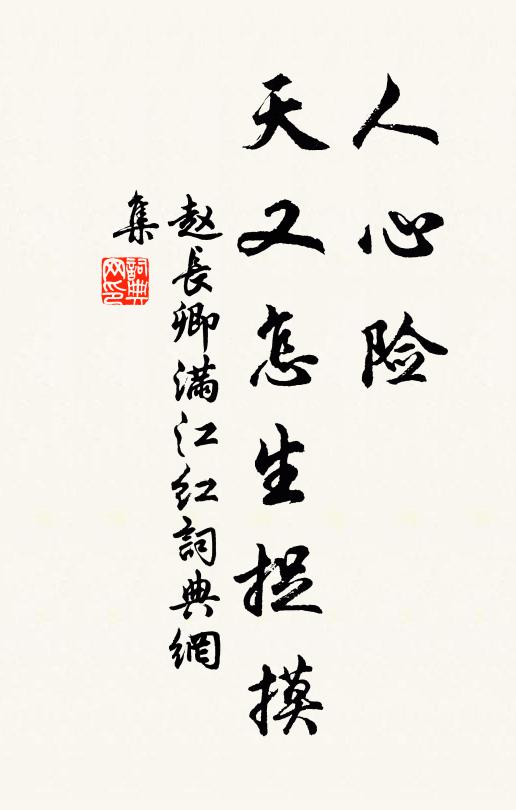 人心险
天又怎生捉摸
赵長卿满江红詞典網
集
詞典网印